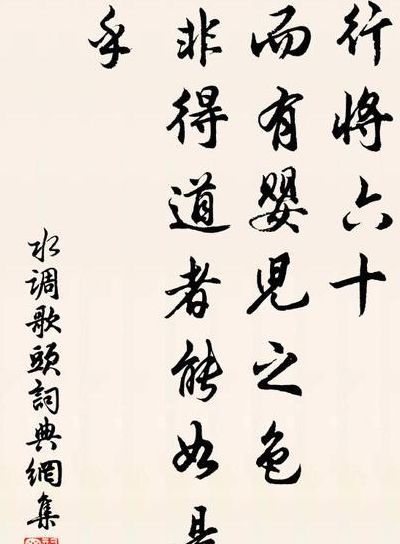 行将六十
而有婴児之色
非得道者能如是
乎
水调歌頭詞典網集